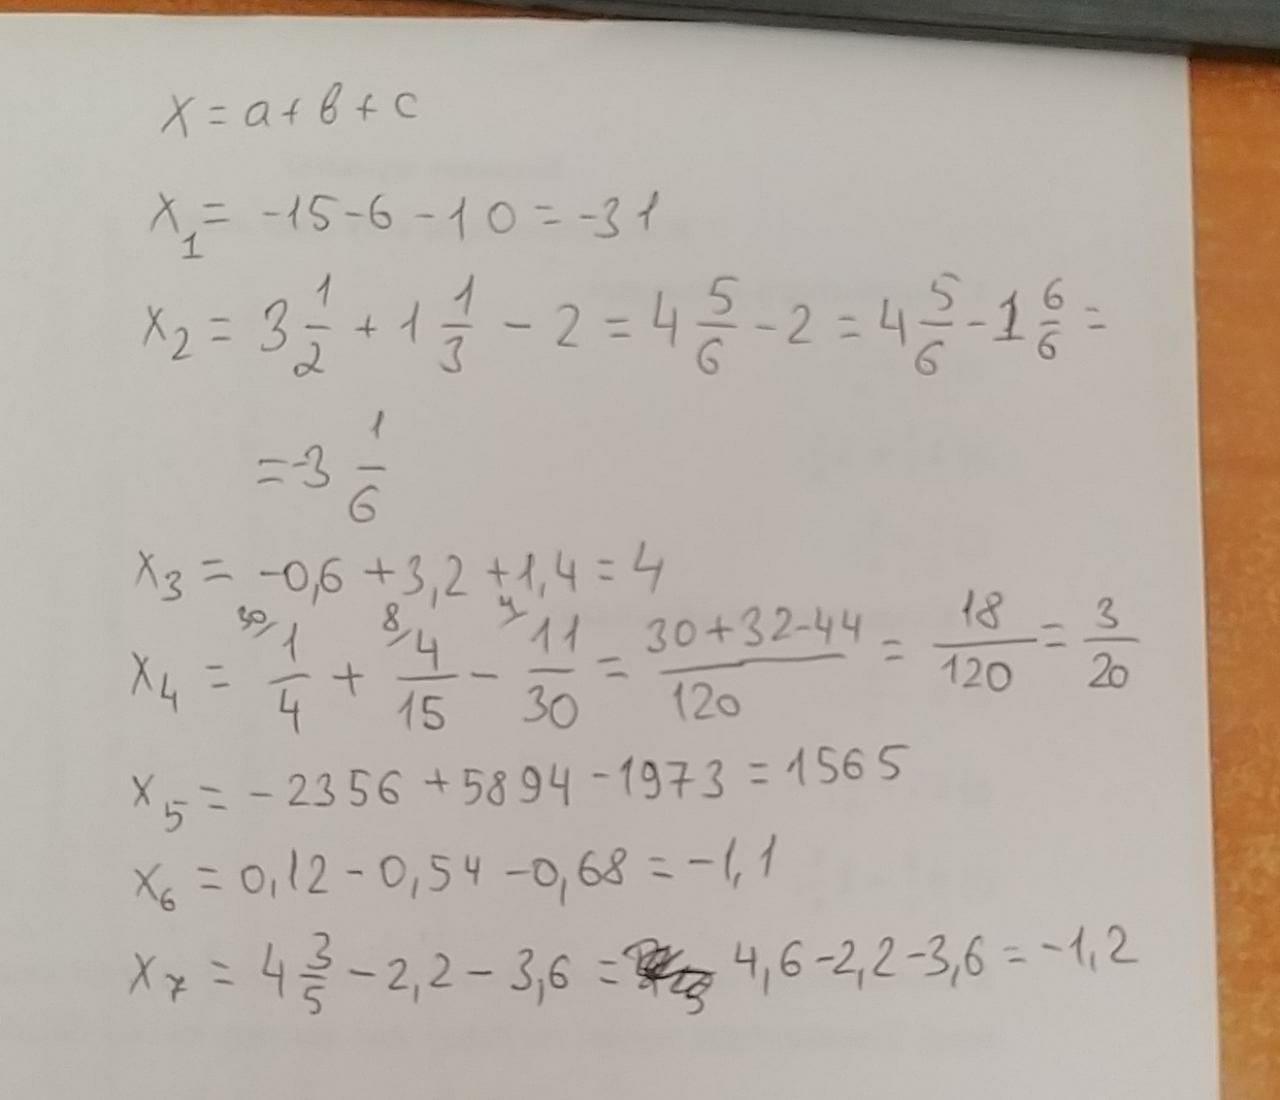 x = a + в + c
x₁ = -15 - 6 - 10 = -31
x₂ = 3 1/2 + 1 1/3 - 2 = 4 5/6 - 2 = 4 5/6 - 1 6/6 =
= -3 1/6
x₃ = -0,6 + 3,2 + 1,4 = 4
30/ 8/ 4/
x₄ = 1/4 + 4/15 - 11/30 = (30+32-44)/120 = 18/120 = 3/20
x₅ = -2356 + 5894 - 1973 = 1565
x₆ = 0,12 - 0,54 - 0,68 = -1,1
x₇ = 4 3/5 - 2,2 - 3,6 = 4,6 - 2,2 - 3,6 = -1,2